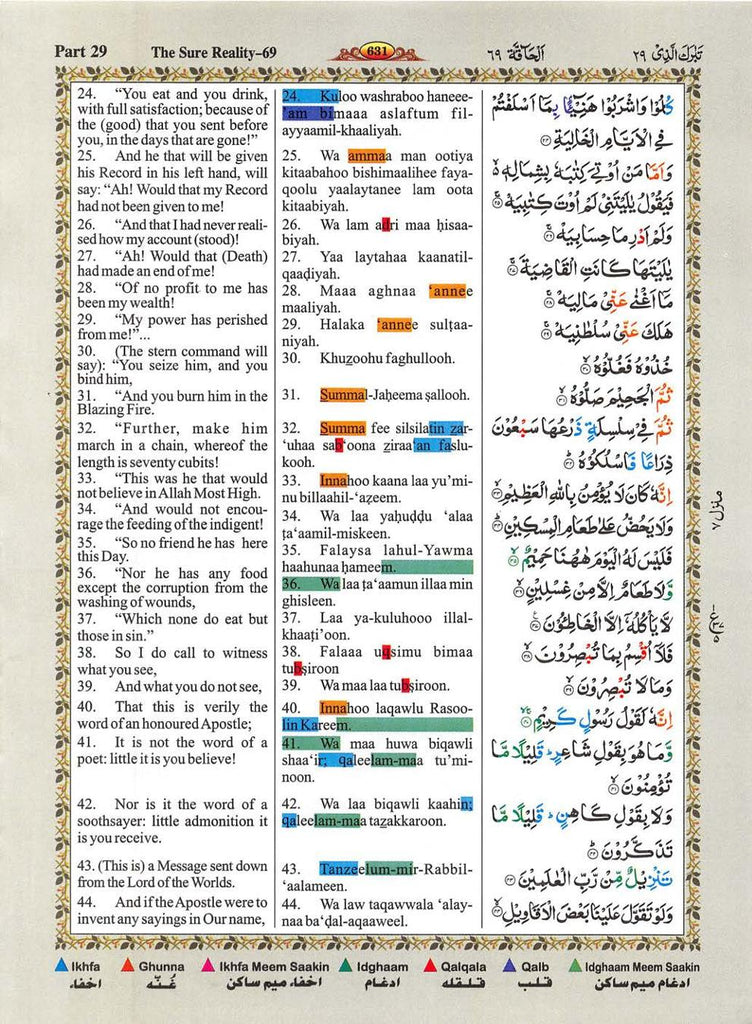 Part 29
The Sure Reality–69
631
اَلْحَاقَّة ٦٩
تَبٰرَكَ الَّذِىْ ٢٩
24. “You eat and you drink,
with full satisfaction; because of
the (good) that you sent before
you, in the days that are gone!”
25. And he that will be given
his Record in his left hand, will
say: “Ah! Would that my Record
had not been given to me!
26. “And that I had never reali-
sed how my account (stood)!
27. “Ah! Would that (Death)
had made an end of me!
28. “Of no profit to me has
been my wealth!
29. “My power has perished
from me!”...
30. (The stern command will
say): “You seize him, and you
bind him,
31. “And you burn him in the
Blazing Fire.
32. “Further, make him
march in a chain, whereof the
length is seventy cubits!
33. “This was he that would
not believe in Allah Most High.
34. “And would not encou-
rage the feeding of the indigent!
35. “So no friend he has here
this Day.
36. “Nor he has any food
except the corruption from the
washing of wounds,
37. “Which none do eat but
those in sin.”
38. So I do call to witness
what you see,
39. And what you do not see,
40. That this is verily the
word of an honoured Apostle;
41. It is not the word of a
poet: little it is you believe!
42. Nor is it the word of a
soothsayer: little admonition it
is you receive.
43. (This is) a Message sent down
from the Lord of the Worlds.
44. And if the Apostle were to
invent any sayings in Our name,
24. Kuloo washraboo haneee-
’am bimaaa aslaftum fil-
ayyaamil-khaaliyah.
25. Wa ammaa man ootiya
kitaabahoo bishimaalihee faya-
qoolu yaalaytanee lam oota
kitaabiyah.
26. Wa lam adri maa ḥisaa-
biyah.
27. Yaa laytahaa kaanatil-
qaaḍiyah.
28. Maaa aghnaa ‘annee
maaliyah.
29. Halaka ‘annee sulṭaa-
niyah.
30. Khuzoohu faghullooh.
31. Summal-Jaḥeema ṣallooh.
32. Summa fee silsilatin zar-
‘uhaa sab‘oona ziraa‘an faslu-
kooh.
33. Innahoo kaana laa yu’mi-
nu billaahil-‘aẓeem.
34. Wa laa yaḥuḍḍu ‘alaa
ṭa‘aamil-miskeen.
35. Falaysa lahul-Yawma
haahunaa ḥameem.
36. Wa laa ṭa‘aamun illaa min
ghisleen.
37. Laa ya-kuluhooo illal-
khaaṭi’oon.
38. Falaaa uqsimu bimaa
tubṣiroon
39. Wa maa laa tubṣiroon.
40. Innahoo laqawlu Rasoo-
lin Kareem.
41. Wa maa huwa biqawli
shaa‘ir; qaleelam-maa tu’mi-
noon.
42. Wa laa biqawli kaahin;
qaleelam-maa tazakkaroon.
43. Tanzeelum-mir-Rabbil-
‘aalameen.
44. Wa law taqawwala ‘alay-
naa ba‘ḍal-aqaaweel.
كُلُوْا وَاشْرَبُوْا هَنِيْٓئًۢا بِمَآ اَسْلَفْتُمْ
فِى الْاَيَّامِ الْخَالِيَةِ ۝٢٤
وَاَمَّا مَنْ اُوْتِىَ كِتٰبَهٗ بِشِمَالِهٖ ۙ
فَيَقُوْلُ يٰلَيْتَنِىْ لَمْ اُوْتَ كِتٰبِيَهْ ۝٢٥
وَلَمْ اَدْرِ مَا حِسَابِيَهْ ۝٢٦
يٰلَيْتَهَا كَانَتِ الْقَاضِيَةَ ۝٢٧
مَآ اَغْنٰى عَنِّىْ مَالِيَهْ ۝٢٨
هَلَكَ عَنِّىْ سُلْطٰنِيَهْ ۝٢٩
خُذُوْهُ فَغُلُّوْهُ ۝٣٠
ثُمَّ الْجَحِيْمَ صَلُّوْهُ ۝٣١
ثُمَّ فِىْ سِلْسِلَةٍ ذَرْعُهَا سَبْعُوْنَ
ذِرَاعًا فَاسْلُكُوْهُ ۝٣٢
اِنَّهٗ كَانَ لَا يُؤْمِنُ بِاللّٰهِ الْعَظِيْمِ ۝٣٣
وَلَا يَحُضُّ عَلٰى طَعَامِ الْمِسْكِيْنِ ۝٣٤
فَلَيْسَ لَهُ الْيَوْمَ هٰهُنَا حَمِيْمٌ ۝٣٥
وَّلَا طَعَامٌ اِلَّا مِنْ غِسْلِيْنٍ ۝٣٦
لَّا يَاْكُلُهٗٓ اِلَّا الْخَاطِـُٔوْنَ ۝٣٧
فَلَآ اُقْسِمُ بِمَا تُبْصِرُوْنَ ۝٣٨
وَمَا لَا تُبْصِرُوْنَ ۝٣٩
اِنَّهٗ لَقَوْلُ رَسُوْلٍ كَرِيْمٍ ۝٤٠
وَّمَا هُوَ بِقَوْلِ شَاعِرٍ ؕ قَلِيْلًا مَّا
تُؤْمِنُوْنَ ۝٤١
وَلَا بِقَوْلِ كَاهِنٍ ؕ قَلِيْلًا مَّا
تَذَكَّرُوْنَ ۝٤٢
تَنْزِيْلٌ مِّنْ رَّبِّ الْعٰلَمِيْنَ ۝٤٣
وَلَوْ تَقَوَّلَ عَلَيْنَا بَعْضَ الْاَقَاوِيْلِ ۝٤٤
منزل ٧
Ikhfa Ghunna Ikhfa Meem Saakin Idghaam Qalqala Qalb Idghaam Meem Saakin
اخفاء غُنّه اخفاء ميم ساكن ادغام قلقله قلب ادغام ميم ساكن